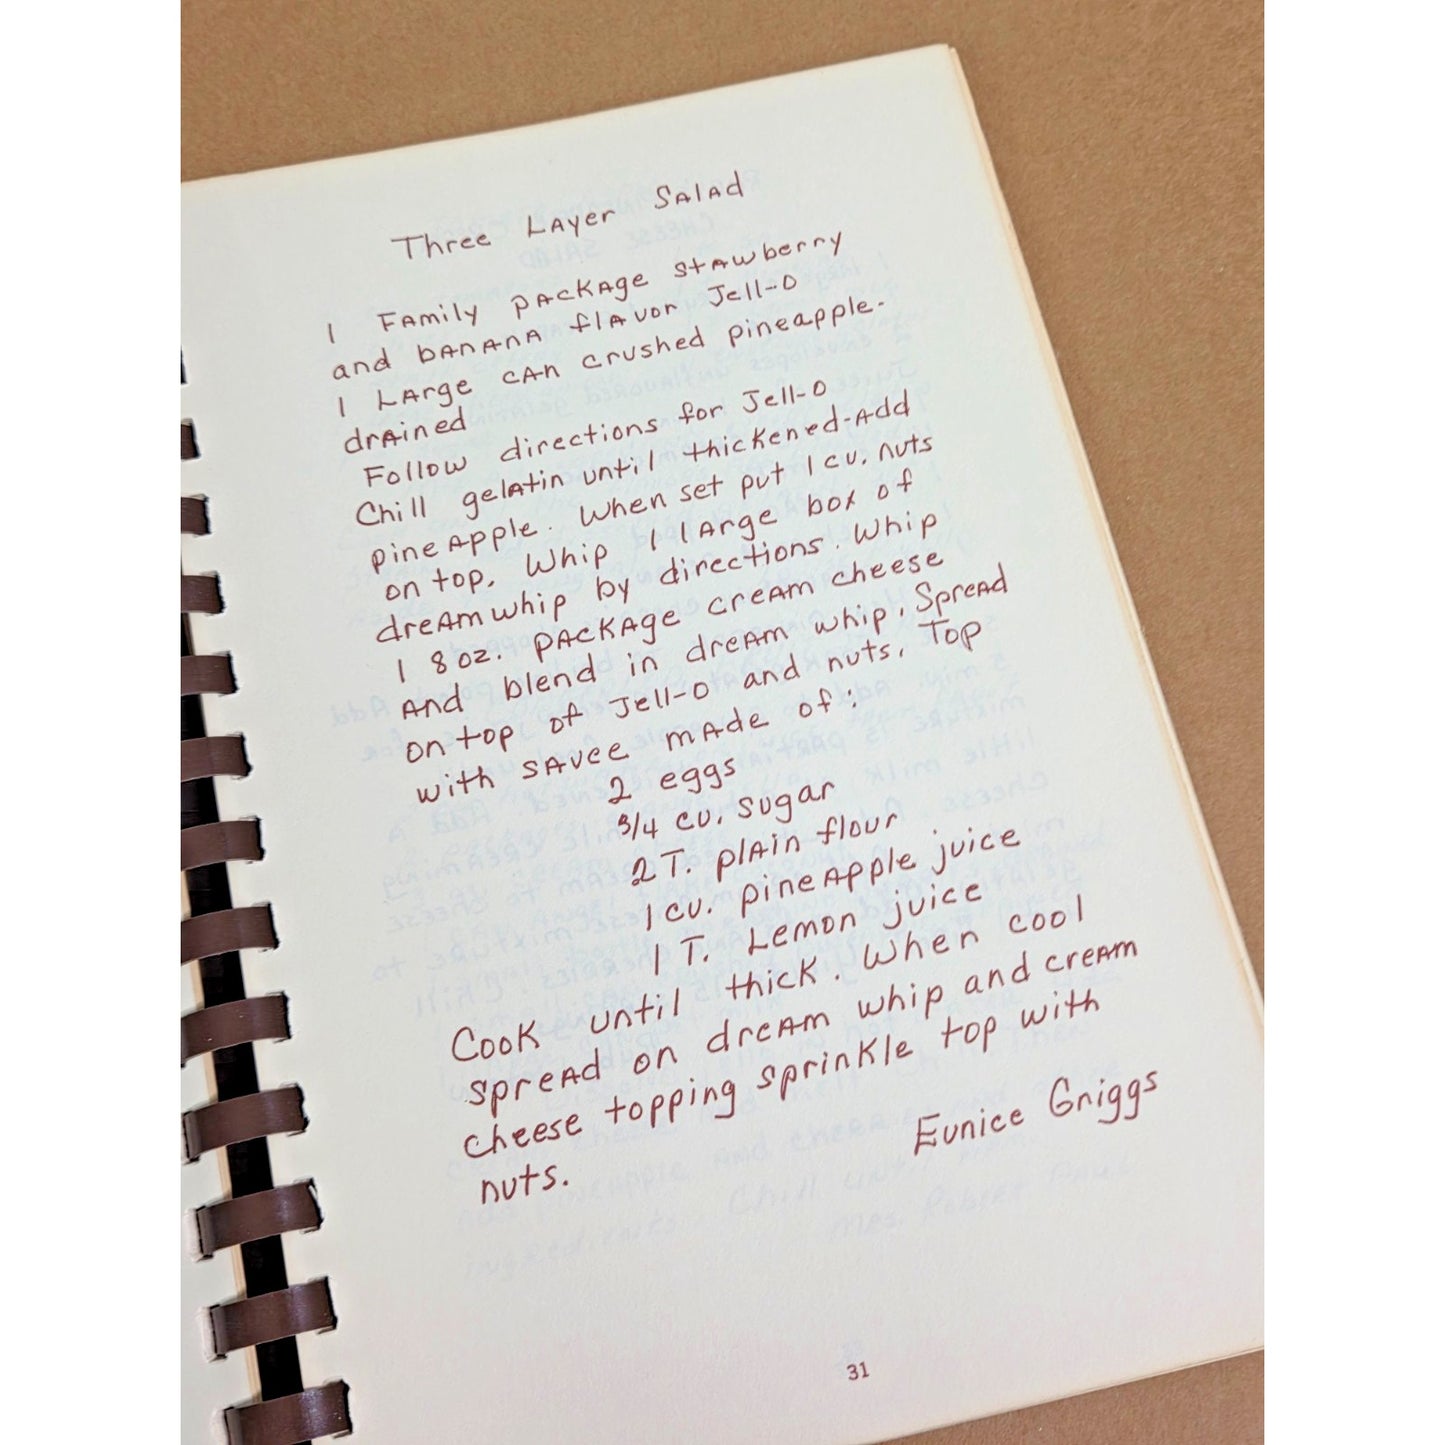 Three Layer Salad
1 Family package stawberry
and banana flavor Jell-O
1 Large can crushed pineapple-
drained
Follow directions for Jell-O
Chill gelatin until thickened-Add
pineapple. When set put 1 cu. nuts
on top. Whip 1 large box of
dream whip by directions. Whip
1 8 oz. package cream cheese
and blend in dream whip. Spread
on top of Jell-O and nuts. Top
with savee made of:
2 eggs
3/4 cu. sugar
2 T. plain flour
1 cu. pineapple juice
1 T. Lemon juice
Cook until thick. When cool
spread on dream whip and cream
cheese topping sprinkle top with
nuts.
Eunice Griggs
31